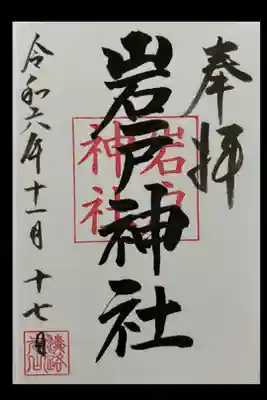 奉拝
岩戸神社
岩戸
神社
令和六年十一月十七日